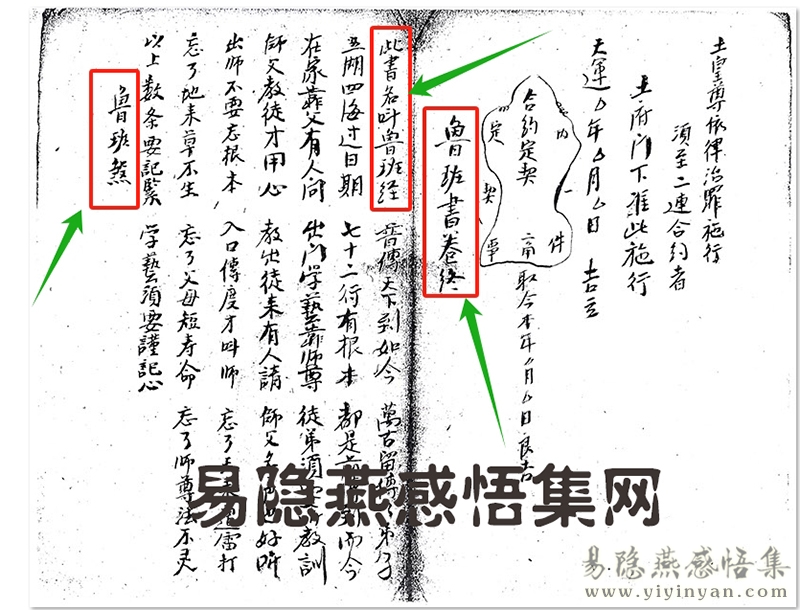 土皇尊依律治罪施行
須至二連合約者
土府门下准此施行
天運 年 月 日 吉立
合约定契
定契事
内一件
取今本年 月 日良吉
魯班書卷终
此書名叫鲁班经 普傳天下到如今 萬古留
五湖四海过日期 七十二行有根本 都是 而今
在家靠父有人问 出门学藝靠师尊 徒弟須 教訓
师父教徒才用心 教出徒来有人請 师父名 好听
出师不要忘根本 入口傳度才叫师 忘了 雷打
忘了地来草不生 忘了父母短寿命 忘了师尊法不灵
以上数条要记緊 学藝須要謹记心
魯班煞
易隐燕感悟集网
易隐燕感悟集
www.yiyinyan.com